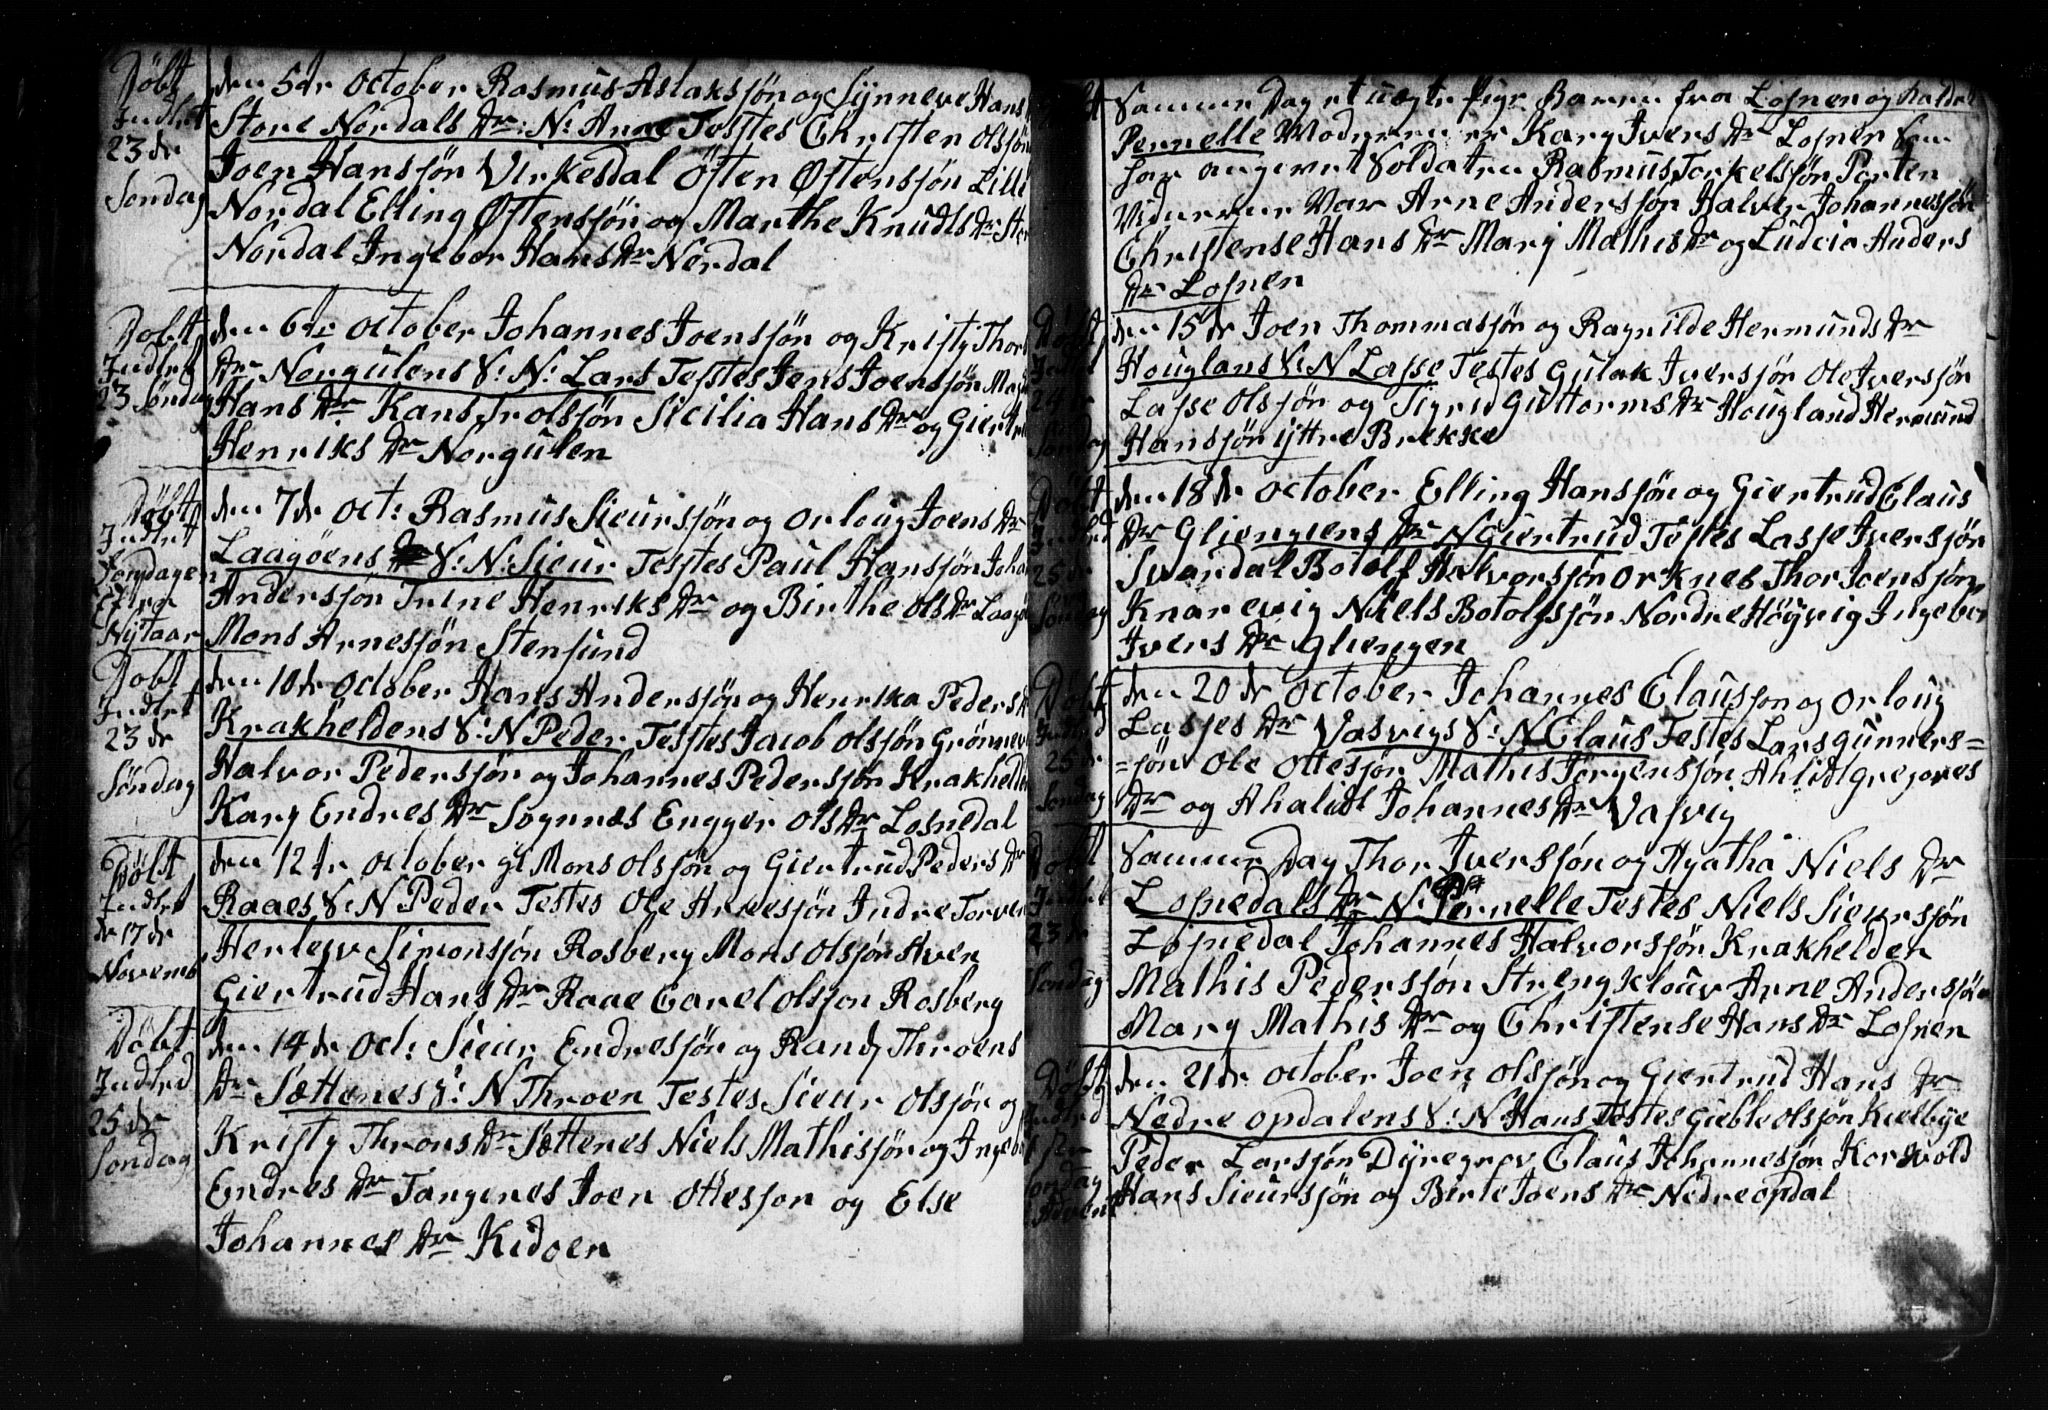 Döbt
Indlet
23 de
Søndag
den 5de October Rasmus Aslaksjön og Synneve Hans
Store Nordals Dr: N: Anne Testes Christen olsjön
Joen Hansjör Virkesdal Östen Østensjön Lille
Nordal Elling Østensjön og Marthe Knudls Dr Store
Nordal Ingebor Hans Dr Nordal
Döbt
Indlet
23 Söndag
den 6te october Johannes Joensjön og Kristy Thor
Dr Norgulens S: N: Lars Testes Jens Joensjön
Hans Dr Hans Trolsjön Sicilia Hans Dr og Giertru
Henriks Dr Norgulen
Döbt
Indlet
Söndagen
Efter
Nytaar
den 7de oct: Rasmus Sieursjön og orloug Joens Dr
Laagöens S: N: Sieur Testes Paul Hansjön
Andersjön Trine Henriks Dr og Birthe ols Dr Laagö
Mons Arnesjön Stensund
Döbt
Indlet
23 de
Söndag
den 10de October Hans Andersjön og Henrika Peders
Krakheldens S: N Peder Testes Jacob olsjön Grönnev
Halvor Pedersjön og Johannes Pedersjön Krakhelde
Kary Endres Dr Sognnæs Engger ols Dr Losnedal
Döbt
Indlet
de 17 de
Novemb
den 12te october gl Mons olsjön og Giertrud Peders Dr
Raaes S: N Peder Testes Ole Arnesjön Indre Torven
Herlejv Simonsjön Rosberg Mons olsjön Hven
Giertrud Hans Dr Raae Carel olsjon Rosberg
Döbt
Indled
25 de
Söndag
den 14de Oct: Sieur Endresjön og Randj Throens
Dr Sættenes S: N Throen Testes Sieur olsjör og
Kristy Throns Dr Sættenes Niels Mathisjön og Ingebor
Endres Dr Tangenes Joen Ottesjon og Else
Johannes Dr Kidöen
Samme Dag et uægte Pige Baren fra Losnen og kaldet
Pernelle Moderen er Kary Ivers Dr Losnen som
har angivet Soldaten Rasmus Torkelsjön Porten
Vidnerne Var Arne Andersjön Halvor Johannesjön
Christense Hans Dr Marj Mathis Dr og Ludcia Anders
Dr Losnen
Döbt
24 de
Söndag
den 15de Joen Thommasjön og Ragnilde Hermunds Dr
Houglans S: N Lasse Testes Gulak Iversjör Ole Iversjör
Lasse Olsjön og Sigrid Guttorms Dr Hougland Hermund
Hansjön ijttre Brekke
Döbt
Indled
25 de
Söndag
den 18de October Elling Hansjön og Giertrud Claus
Dr Gliengiens Dr N Giertrud Testes Lasse Iversjön
Svardal Botolf Halvorsjön Orknes Thor Joensjön
Knarevig Niels Botolfsjön Nordre Höyvig Ingebor
Ivers Dr Gliengen
Döbt
Indled
25 de
Söndag
den 20de October Johannes Clausjon og orloug
Lasjes Dr Vasvigs S: N Claus Testes Lars Gunners=
=jön Ole Ottesjön Mathis Jörgensjön Ahlidt Gregores
Dr og Ahalidt Johannes Dr Vasvig
Döbt
Indled
23 de
Söndag
Samme Dag Thor Iversjön og Agatha Niels Dr
Losnedals Dr N: Pernelle Testes Niels Sieursjön
Losnedal Johannes Halvorsjör Krakhelden
Mathis Pedersjön Streng Klouv Arne Andersjön
Mary Mathis Dr og Christense Hans Dr Losnen
Döbt
Indled
1ste
Söndag
Advent
den 21de October Joen olsjön og Giertrud Hans Dr
Nedre opdalens S: N: Hans Testes Gieble olsjön Kielbye
Peder Larsjön Dijregrov Claus Johannesjön Korsvold
Hans Sieursjön og Birte Joens Dr Nedre opdal